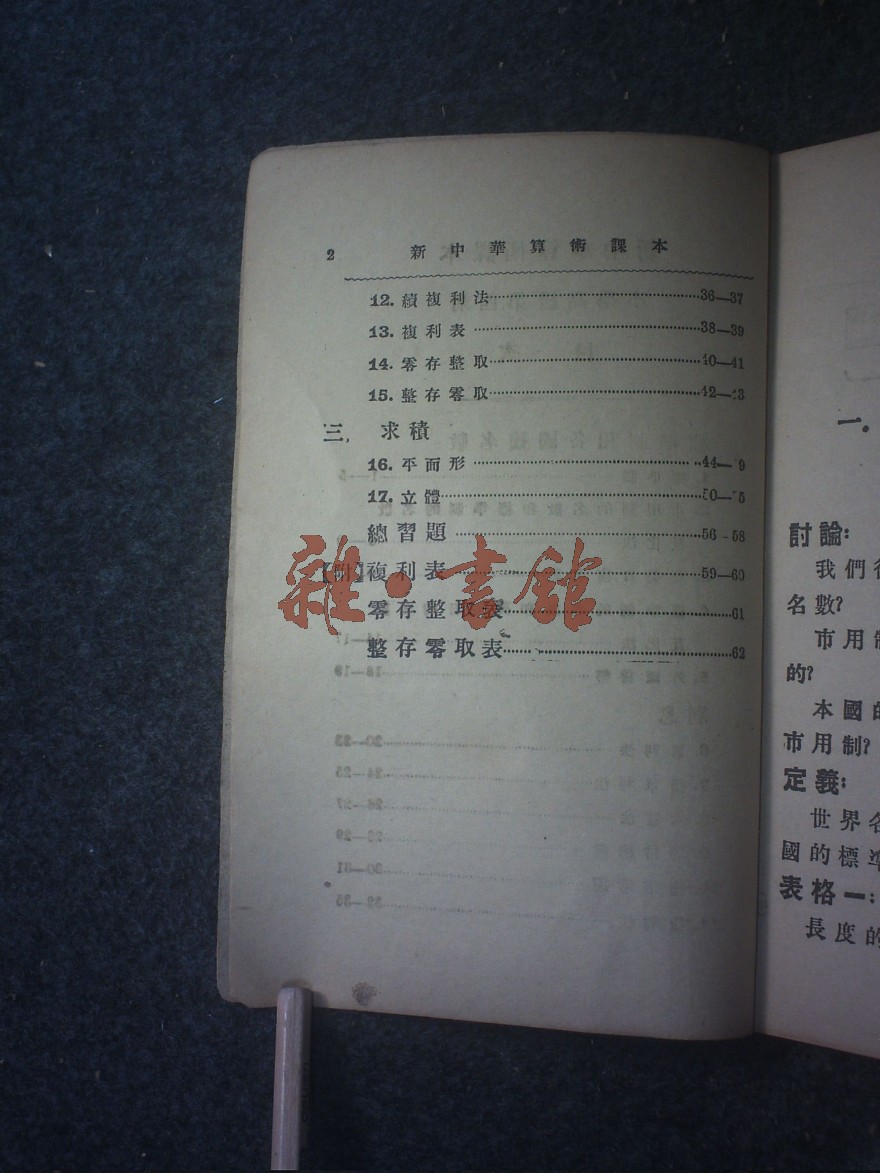 2 新中華算術課本
12. 續複利法 36—37
13. 複利表 38—39
14. 零存整取 40—41
15. 整存零取 42—43
三. 求積
16. 平面形 44—9
17. 立體 50—5
總習題 56-58
【附】複利表 59—60
零存整取表 61
整存零取表 62
雜·書館
一.
討論:
我們
名數?
市用制
的?
本國的
市用制?
定義:
世界名
國的標準
表格一:
長度的